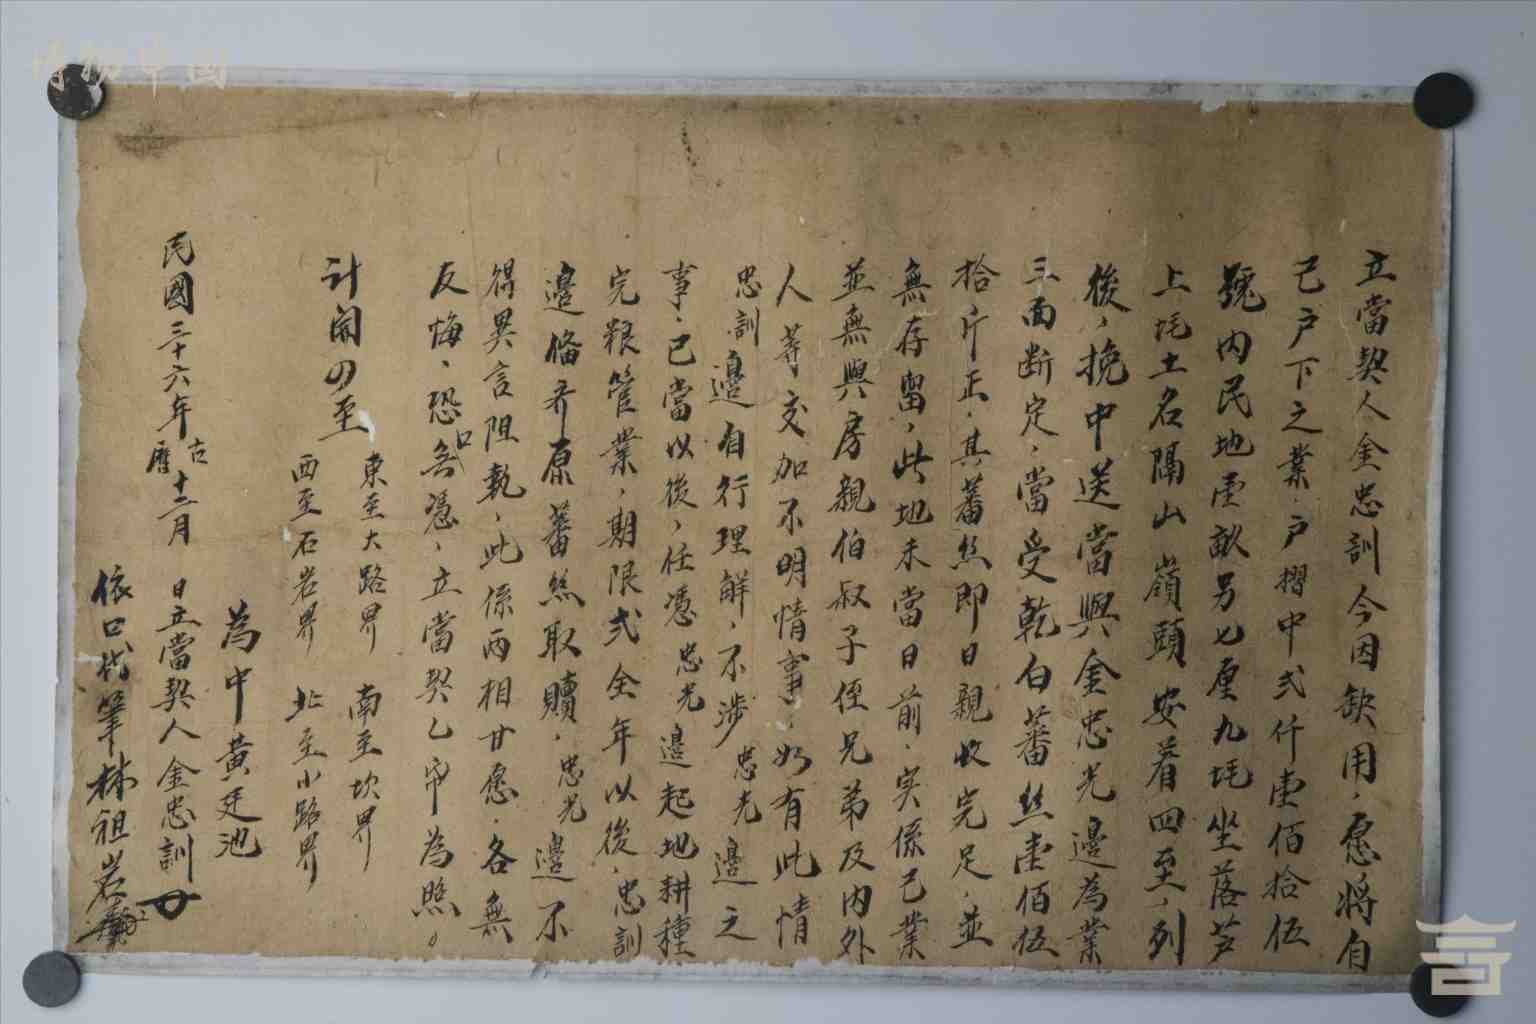 立當契人金忠訓今因缺用、愿將自
己戶下之業、戶摺中弍仟壹佰拾伍
號內民地壹畝另七厘九毛坐落芦
上垞土名隔山嶺頭安着四至、列
後、挽中送當與金忠光邊為業
三面断定、當受乾白蕃絲壹佰伍
拾斤正、其蕃絲即日親收完足、並
無存留、此地未當日前、实係己業
並無與房親伯叔子侄兄弟及內外
人等交加不明情事、如有此情
忠訓邊自行理解、不涉忠光邊之
事、已當以後、任憑忠光邊起地耕種
完粮管業、期限弍全年以後、忠訓
邊俻齐原蕃絲取贖、忠光邊不
得異言阻執、此係两相甘愿、各無
反悔、恐口無憑、立當契乙帋為照。
計開四至
東至大路界 南至坎界
西至石岩界 北至小路界
為中黄廷池
民國三十六年古曆十二月 日立當契人金忠訓
依口代筆林祖岩
博物中國